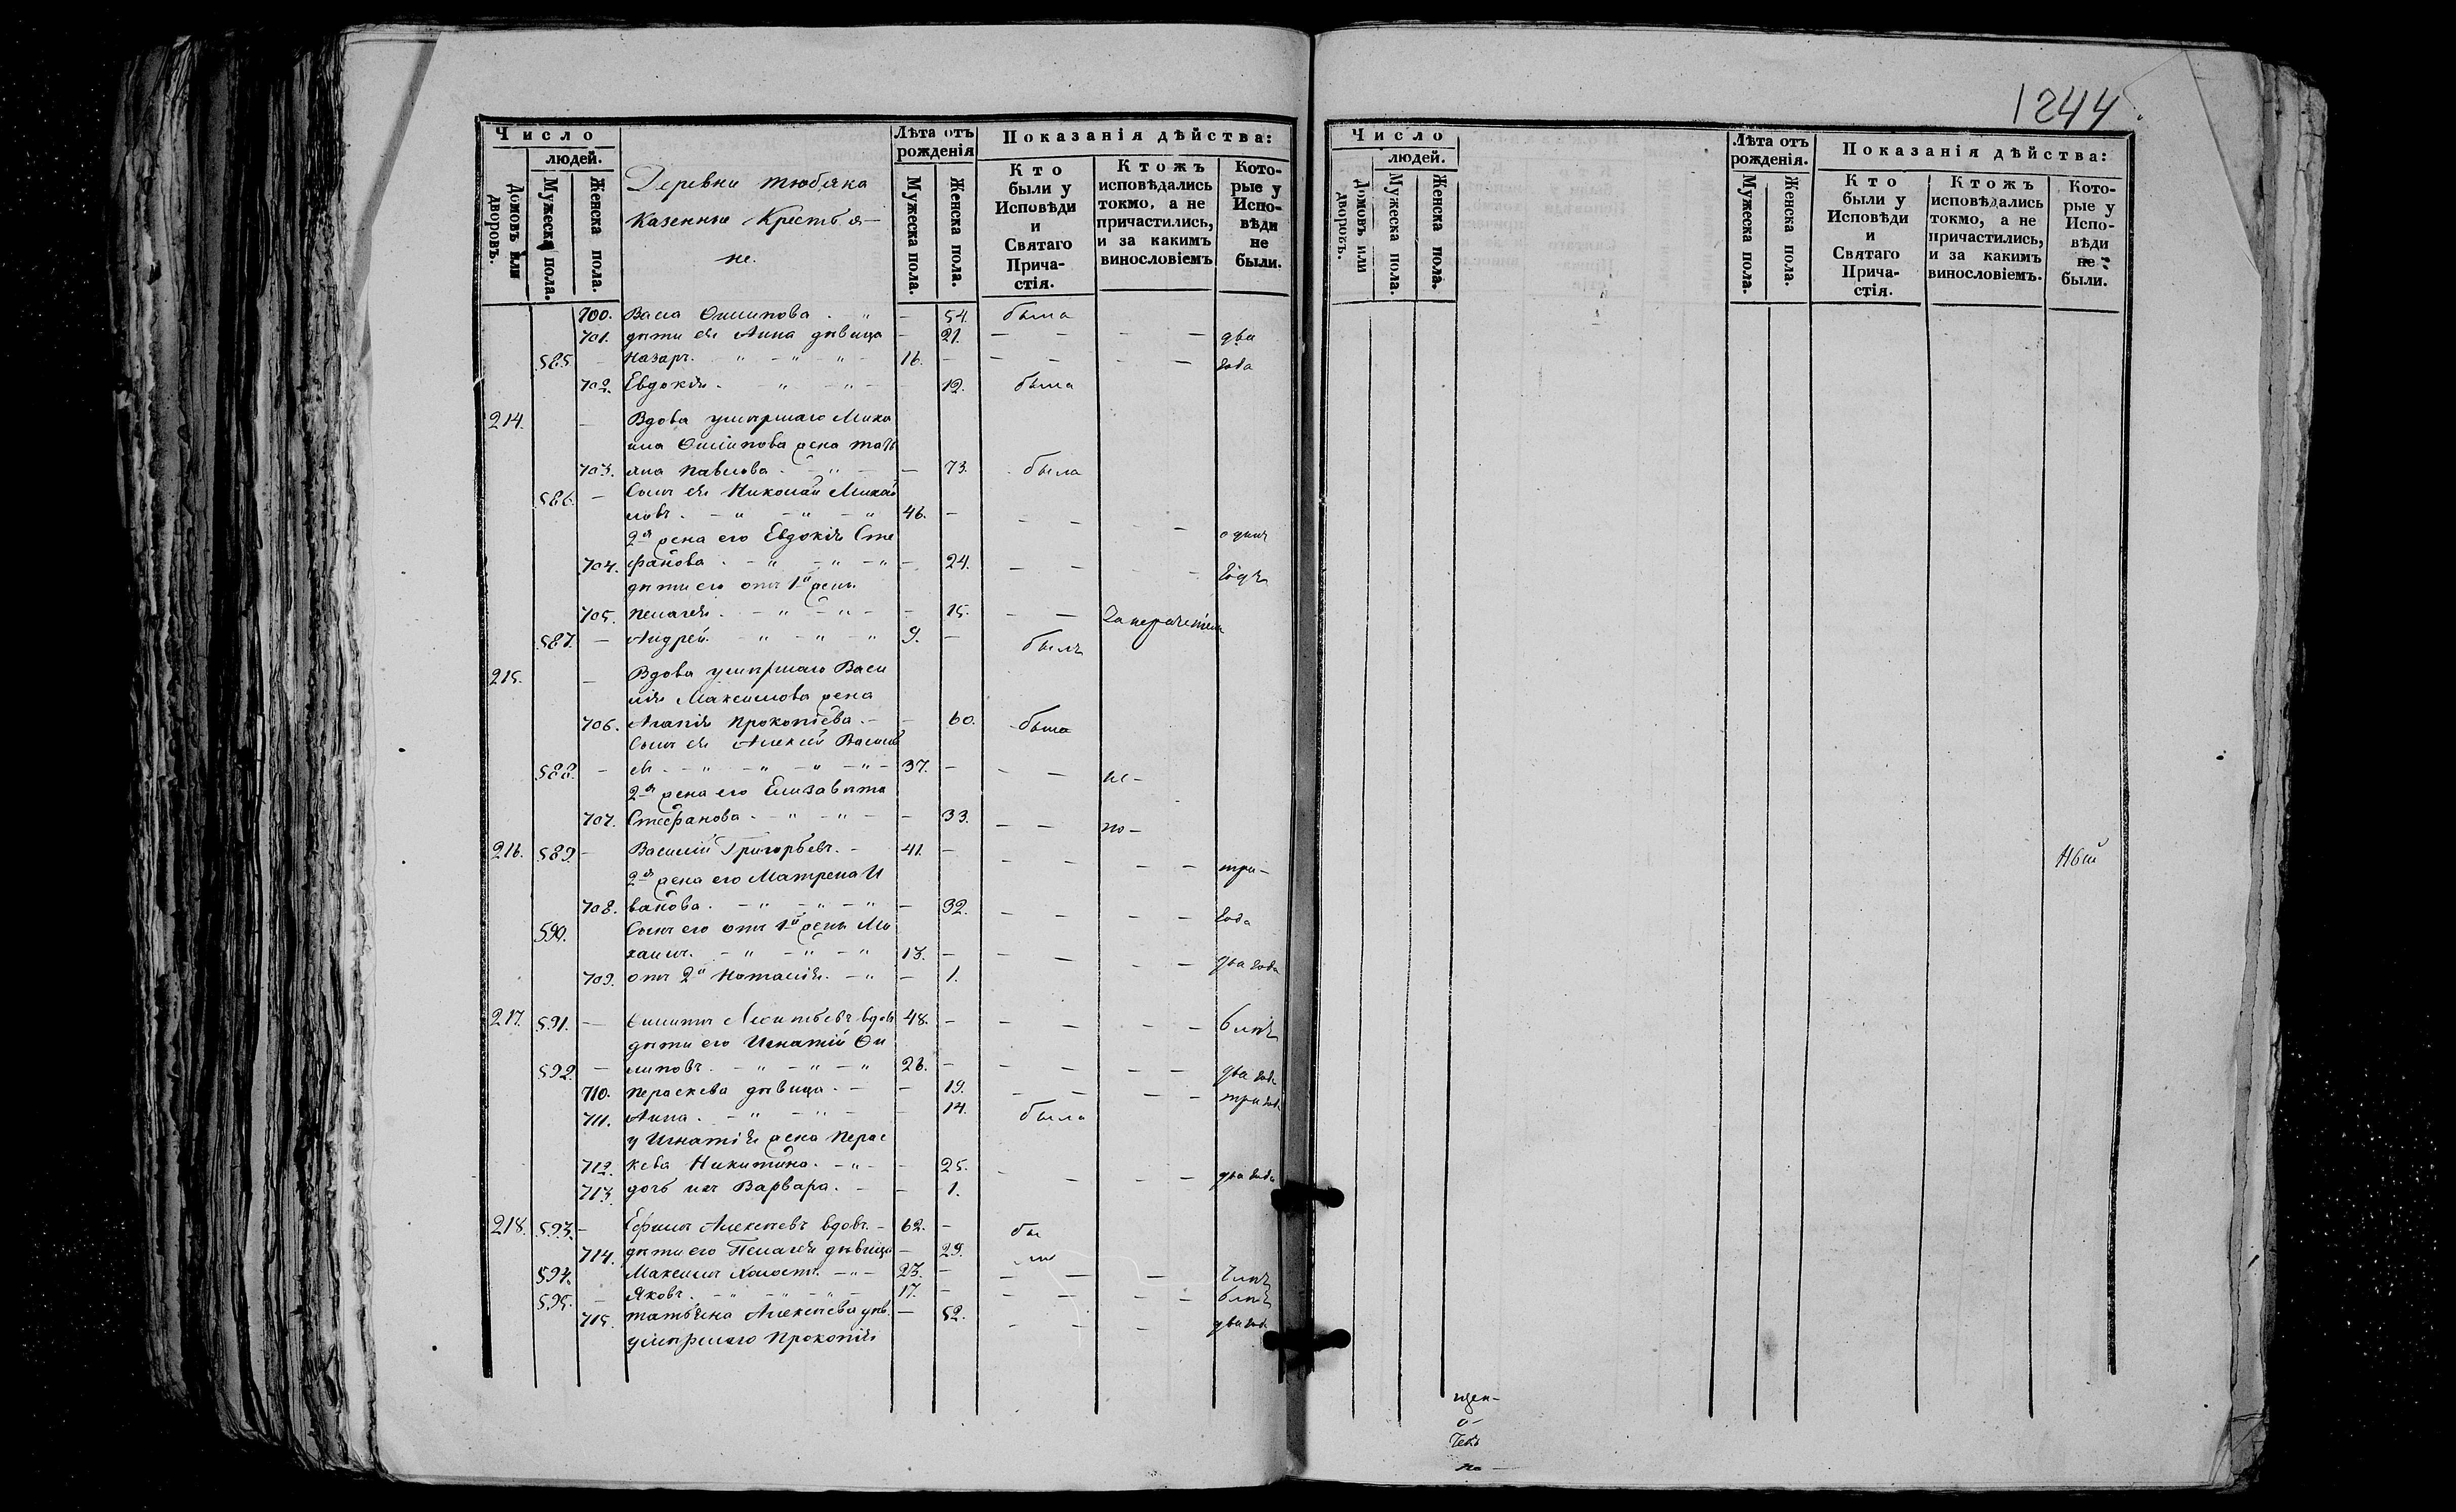 1244
Число
людей.
Домовъ или дворовъ.
Мужеска пола.
Женска пола.
Деревни Тюбяка
казенные Крестья-
не.
Лѣта отъ рожденія
Мужеска пола.
Женска пола.
Показанія дѣйства:
Кто были у Исповѣди и Святаго Прича- стія.
Ктожъ исповѣдались токмо, а не причастились, и за какимъ винословіемъ
Кото- рые у Испо- вѣди не были.
700. Васса Филипова - 54. была
701. дѣти ея Анна дѣвица - 21. - - - - два
585. - Назаръ. 16. - - - - - года
702. Евдокія. - 12. была
214. - Вдова умершаго Миха
ила Филипова жена Тать
703. яна Павлова. - 73. была
586. - Сынъ ея Николай Михай
ловъ. 46. -
2я жена его Евдокія Сте - - - одинъ
704. фанова. - 24. - - - годъ
дѣти его отъ 1й жены
705. Пелагея. - 15. - -
587. - Андрей. 9. - былъ
215. - Вдова умершаго Васи
лія Максимова жена
706. Агапія Прокопіева. - 60. была
Сынъ ея Алексѣй Василь
588. - евъ. 37. - - - не-
2я жена его Елизавета
707. Стефанова - 33. - - по-
216. 589. - Василій Григорьевъ. 41. - - - - - три-
2я жена его Матрена И
708. ванова. - 32. - - - - года
590. Сынъ его отъ 1й жены Ми
хаилъ. 13. - - - - - два года
709. отъ 2й Наталія. - 1.
217. 591. - Филипъ Леонтьевъ вдов 48. - - - - - 6 лѣтъ
дѣти его Игнатій Фи
592. - липовъ. 26. - - - - - два года
710. Пераскева дѣвица. - 19. - - - - три года
711. Анна. - 14. была
у Игнатія жена Перас
712. кева Никитина. - 25. - - - - два года
713. дочь ихъ Варвара. - 1.
218. 593. - Ефимъ Алексѣевъ вдовъ. 62. - бы
714. дѣти его Пелагея дѣвица - 29. ли
594. Максимъ холостъ. 23. - - - - 7 лѣтъ
595. - Яковъ. 17. - - - - - 6 лѣтъ
715. Татьяна Алексѣева - 52. - - - два года
умершаго Прокопія
Число
людей.
Домовъ или дворовъ.
Мужеска пола.
Женска пола.
Лѣта отъ рожденія.
Мужеска пола.
Женска пола.
Показанія дѣйства:
Кто были у Исповѣди и Святаго Прича- стія.
Ктожъ исповѣдались токмо, а не причастились, и за какимъ винословіемъ.
Кото- рые у Испо- вѣди не были.